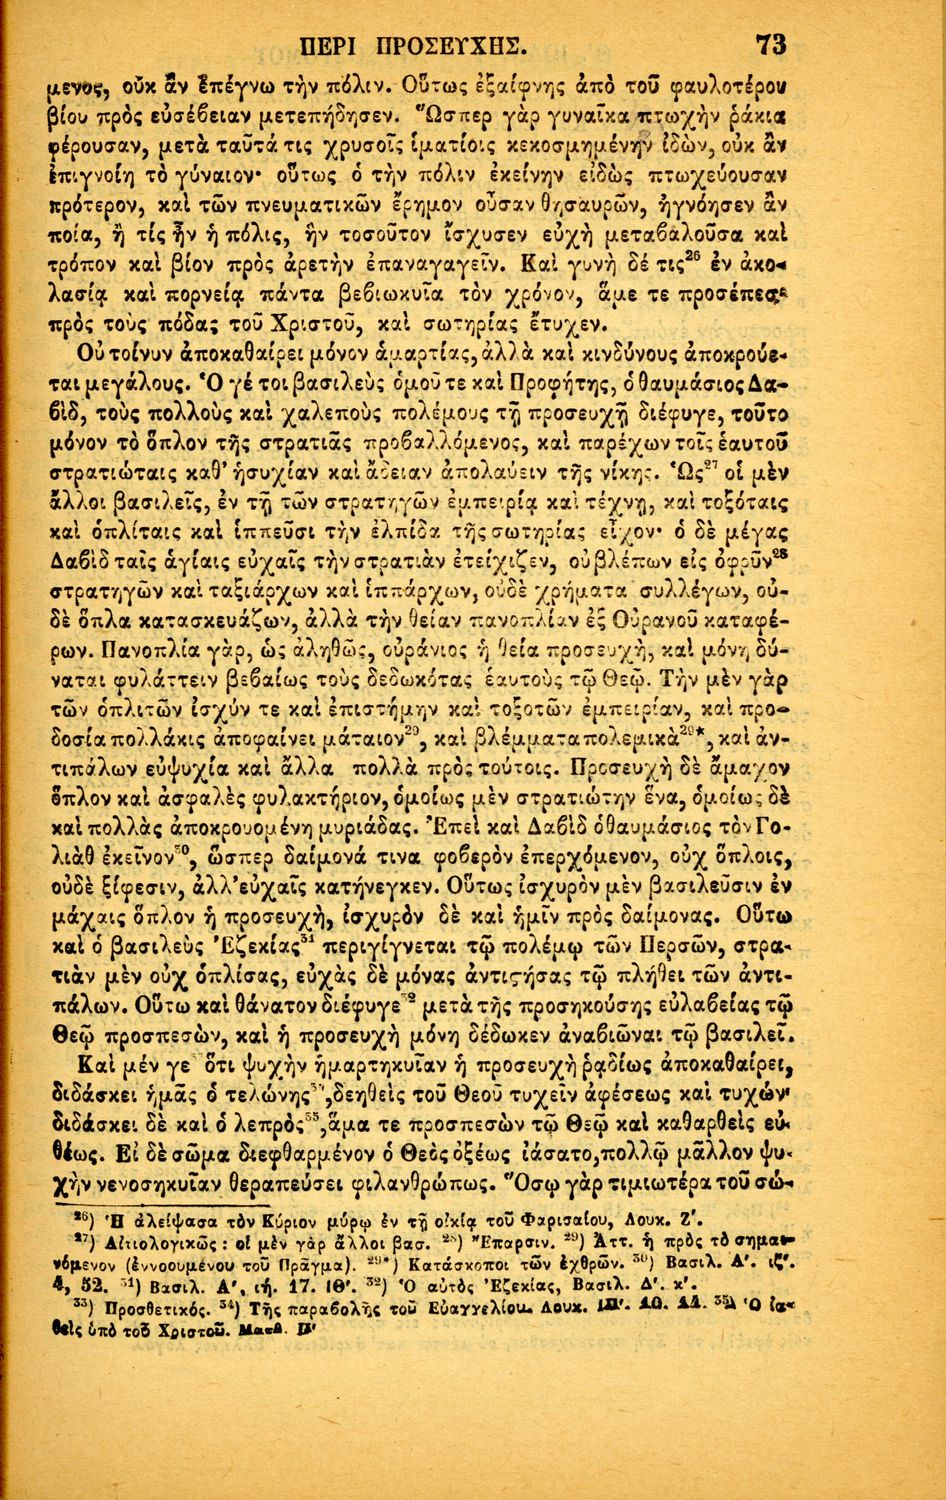 ΠΕΡΙ ΠΡΟΣΕΥΧΗΣ. 73
μενος, οὐκ ἂν ἐπέγνω τὴν πόλιν. Οὕτως ἐξαίφνης ἀπὸ τοῦ φαυλοτέρου
βίου πρὸς εὐσέβειαν μετεπήδησεν. Ὥσπερ γὰρ γυναῖκα πτωχὴν ῥάκια
φέρουσαν, μετὰ ταῦτά τις χρυσοῖς ἱματίοις κεκοσμημένην ἰδὼν, οὐκ ἂν
ἐπιγνοίη τὸ γύναιον· οὕτως ὁ τὴν πόλιν ἐκείνην εἰδὼς πτωχεύουσαν
πρότερον, καὶ τῶν πνευματικῶν ἔρημον οὖσαν θησαυρῶν, ἠγνόησεν ἂν
ποία, ἢ τίς ἦν ἡ πόλις, ἣν τοσοῦτον ἴσχυσεν εὐχὴ μεταβαλοῦσα καὶ
τρόπον καὶ βίον πρὸς ἀρετὴν ἐπαναγαγεῖν. Καὶ γυνὴ δέ τις²⁶ ἐν ἀκο-
λασίᾳ καὶ πορνείᾳ πάντα βεβιωκυῖα τὸν χρόνον, ἅμε τε προσέπεσε
πρὸς τοὺς πόδας τοῦ Χριστοῦ, καὶ σωτηρίας ἔτυχεν.
Οὐ τοίνυν ἀποκαθαίρει μόνον ἁμαρτίας, ἀλλὰ καὶ κινδύνους ἀποκρούε-
ται μεγάλους. Ὁ γέ τοι βασιλεὺς ὁμοῦ τε καὶ Προφήτης, ὁ θαυμάσιος Δα-
βὶδ, τοὺς πολλοὺς καὶ χαλεποὺς πολέμους τῇ προσευχῇ διέφυγε, τοῦτο
μόνον τὸ ὅπλον τῆς στρατιᾶς προβαλλόμενος, καὶ παρέχων τοῖς ἑαυτοῦ
στρατιώταις καθ' ἡσυχίαν καὶ ἄδειαν ἀπολαύειν τῆς νίκης. Ὡς²⁷ οἱ μὲν
ἄλλοι βασιλεῖς, ἐν τῇ τῶν στρατηγῶν ἐμπειρίᾳ καὶ τέχνῃ, καὶ τοξόταις
καὶ ὁπλίταις καὶ ἱππεῦσι τὴν ἐλπίδα τῆς σωτηρίας εἶχον· ὁ δὲ μέγας
Δαβὶδ ταῖς ἁγίαις εὐχαῖς τὴν στρατιὰν ἐτείχιζεν, οὐ βλέπων εἰς ὀφρῦν²⁸
στρατηγῶν καὶ ταξιάρχων καὶ ἱππάρχων, οὐδὲ χρήματα συλλέγων, οὐ-
δὲ ὅπλα κατασκευάζων, ἀλλὰ τὴν θείαν πανοπλίαν ἐξ Οὐρανοῦ καταφέ-
ρων. Πανοπλία γὰρ, ὡς ἀληθῶς, οὐράνιος ἡ θεία προσευχὴ, καὶ μόνη δύ-
ναται φυλάττειν βεβαίως τοὺς δεδωκότας ἑαυτοὺς τῷ Θεῷ. Τὴν μὲν γὰρ
τῶν ὁπλιτῶν ἰσχύν τε καὶ ἐπιστήμην καὶ τοξοτῶν ἐμπειρίαν, καὶ προ-
δοσία πολλάκις ἀποφαίνει μάταιον²⁹, καὶ βλέμματα πολεμικὰ²⁹*, καὶ ἀν-
τιπάλων εὐψυχία καὶ ἄλλα πολλὰ πρὸς τούτοις. Προσευχὴ δὲ ἄμαχον
ὅπλον καὶ ἀσφαλὲς φυλακτήριον, ὁμοίως μὲν στρατιώτην ἕνα, ὁμοίως δὲ
καὶ πολλὰς ἀποκρουομένη μυριάδας. Ἐπεὶ καὶ Δαβὶδ ὁ θαυμάσιος τὸν Γο-
λιὰθ ἐκεῖνον³⁰, ὥσπερ δαίμονά τινα φοβερὸν ἐπερχόμενον, οὐχ ὅπλοις,
οὐδὲ ξίφεσιν, ἀλλ' εὐχαῖς κατήνεγκεν. Οὕτως ἰσχυρὸν μὲν βασιλεῦσιν ἐν
μάχαις ὅπλον ἡ προσευχὴ, ἰσχυρὸν δὲ καὶ ἡμῖν πρὸς δαίμονας. Οὕτω
καὶ ὁ βασιλεὺς Ἐζεκίας³¹ περιγίγνεται τῷ πολέμῳ τῶν Περσῶν, στρα-
τιὰν μὲν οὐχ ὁπλίσας, εὐχὰς δὲ μόνας ἀντιστήσας τῷ πλήθει τῶν ἀντι-
πάλων. Οὕτω καὶ θάνατον διέφυγε³² μετὰ τῆς προσηκούσης εὐλαβείας τῷ
Θεῷ προσπεσὼν, καὶ ἡ προσευχὴ μόνη δέδωκεν ἀναβιῶναι τῷ βασιλεῖ.
Καὶ μέν γε ὅτι ψυχὴν ἡμαρτηκυῖαν ἡ προσευχὴ ῥᾳδίως ἀποκαθαίρει,
διδάσκει ἡμᾶς ὁ τελώνης³⁴, δεηθεὶς τοῦ Θεοῦ τυχεῖν ἀφέσεως καὶ τυχών·
διδάσκει δὲ καὶ ὁ λεπρὸς³⁵, ἅμα τε προσπεσὼν τῷ Θεῷ καὶ καθαρθεὶς εὐ-
θέως. Εἰ δὲ σῶμα διεφθαρμένον ὁ Θεὸς ὀξέως ἰάσατο, πολλῷ μᾶλλον ψυ-
χὴν νενοσηκυῖαν θεραπεύσει φιλανθρώπως. Ὅσῳ γὰρ τιμιωτέρα τοῦ σώ-
²⁶) Ἡ ἀλείψασα τὸν Κύριον μύρῳ ἐν τῇ οἰκίᾳ τοῦ Φαρισαίου, Λουκ. Ζ'.
²⁷) Αἰτιολογικῶς: οἱ μὲν γὰρ ἄλλοι βασ. ²⁸) Ἔπαρσιν. ²⁹) Ἀττ. ἡ πρὸς τὸ σημαι-
νόμενον (ἐννοουμένου τοῦ Πρᾶγμα). ²⁹*) Κατάσκοποι τῶν ἐχθρῶν. ³⁰) Βασιλ. Α'. ιζ'.
4, 52. ³¹) Βασιλ. Α', ιή. 17. ΙΘ'. ³²) Ὁ αὐτὸς Ἐζεκίας, Βασιλ. Δ'. κ'.
³³) Προσθετικός. ³⁴) Τῆς παραβολῆς τοῦ Εὐαγγελίου Λουκ. ΙΗ'. ³⁵) Ὁ ἰα-
θεὶς ὑπὸ τοῦ Χριστοῦ. Ματθ. Η'